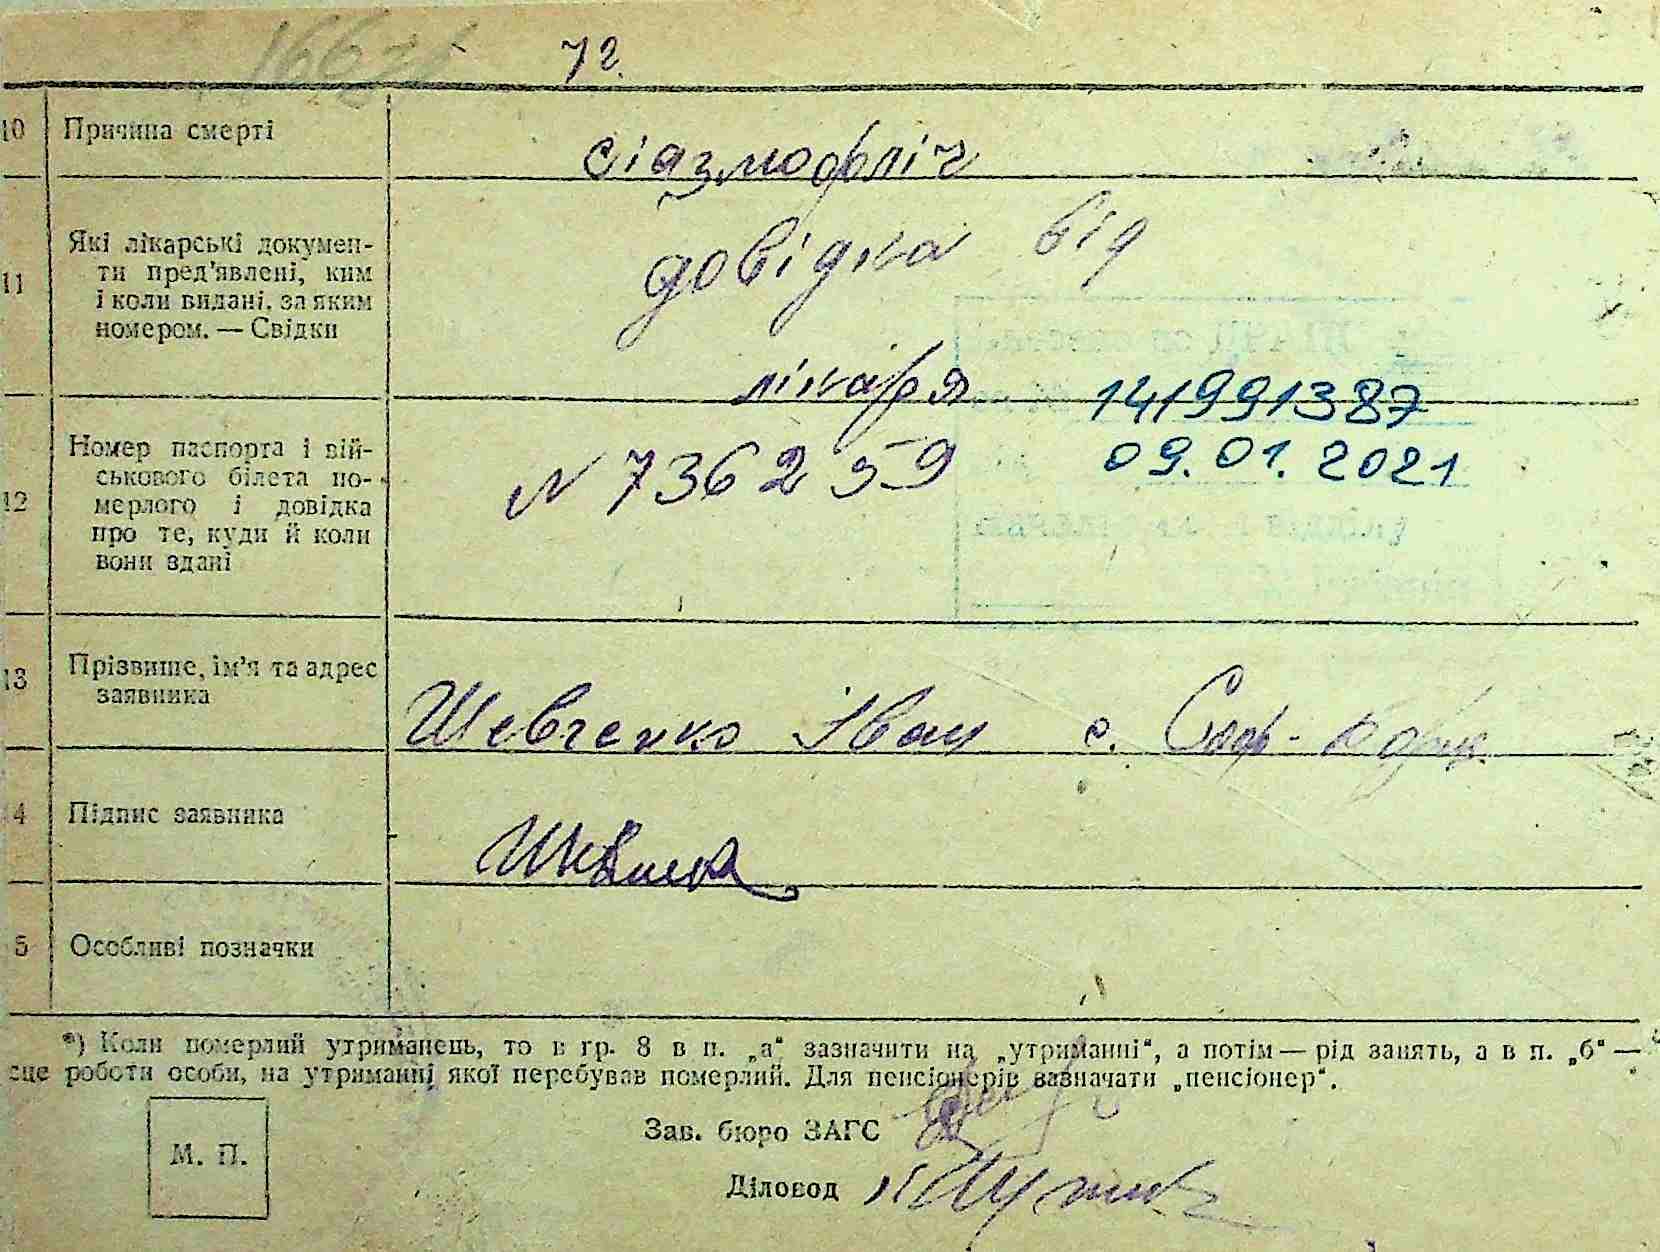 7 г.
10 Причина смерті
сіязмофліч
11 Які лікарські докумен-
ти пред'явлені, ким
і коли видані, за яким
номером. — Свідки
довідка від
лікаря
141991387
09.01.2021
12 Номер паспорта і вій-
ськового білета по-
мерлого і довідка
про те, куди й коли
вони здані
N 736259
13 Прізвище, ім'я та адрес
заявника
Шевченко Іван с.
4 Підпис заявника
5 Особливі позначки
*) Коли померлий утриманець, то в гр. 8 в п. „а“ зазначити на „утриманні“, а потім — рід занять, а в п. „б“ —
сце роботи особи, на утриманні якої перебував померлий. Для пенсіонерів зазначати „пенсіонер“.
М. П.
Зав. бюро ЗАГС
Діловод